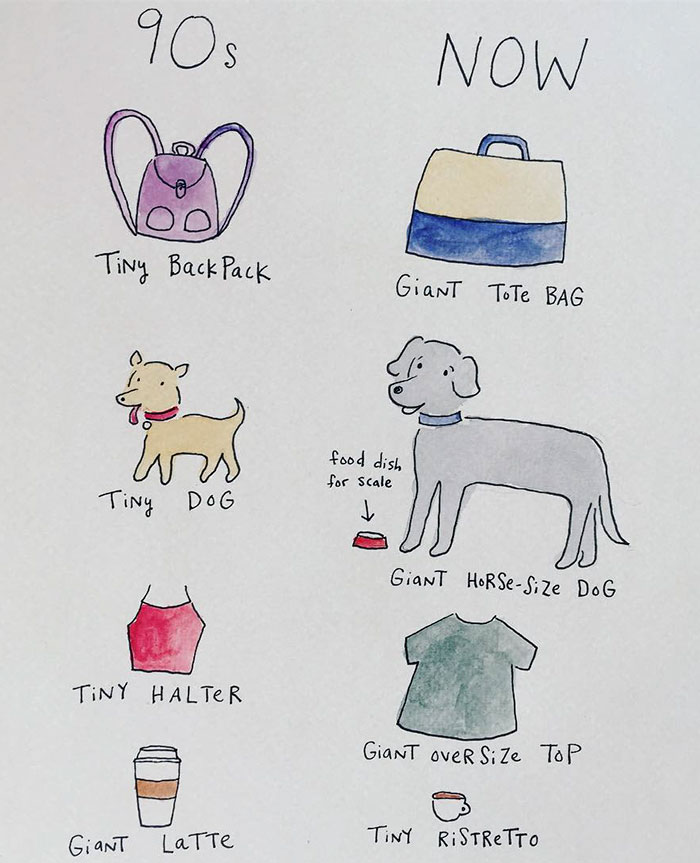 90s
NOW
Tiny BackPack
Giant Tote Bag
Tiny Dog
food dish
for scale
Giant Horse-Size Dog
Tiny Halter
Giant oversize Top
Giant Latte
Tiny Ristretto